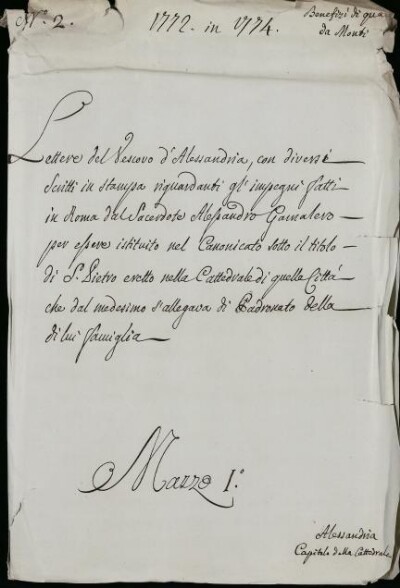 N.º 2.
1772. in 1774.
Benefizi di qua
da Monti
Lettere del Vescovo d'Alessandria, con diversi
Scritti in stampa riguardanti gl'impegni fatti
in Roma dal Sacerdote Alessandro Gamalero
per essere istituito nel Canonicato sotto il titolo
di S. Pietro eretto nella Cattedrale di quella Città
che dal medesimo s'allegava di Padronato della
di lui famiglia
Mazzo I.º
Alessandria
Capitolo della Cattedrale